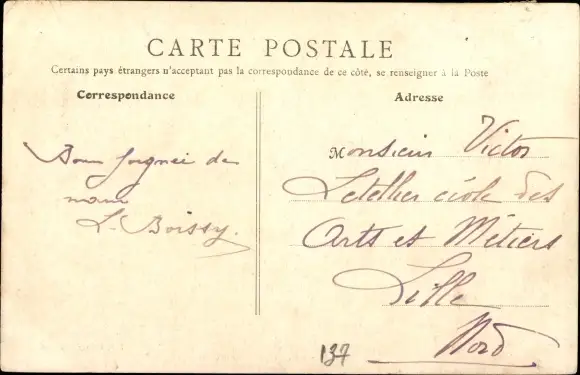 CARTE POSTALE
Certains pays étrangers n'acceptant pas la correspondance de ce côté, se renseigner à la Poste
Correspondance
Bonne poignée de
main
L. Boissy.
Adresse
Monsieur Victor
Letellier école des
Arts et Métiers
Lille
Nord
137